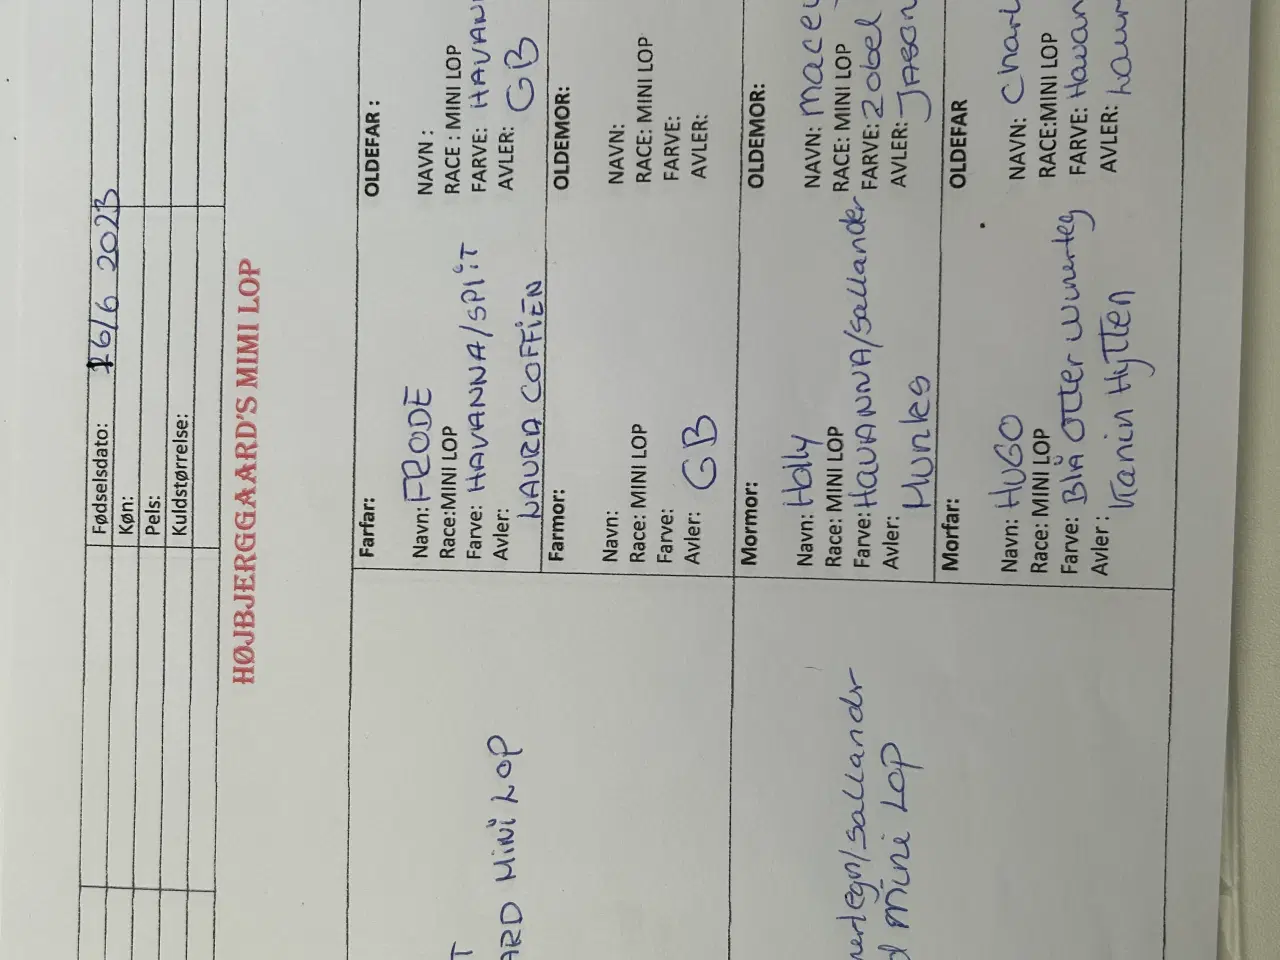 Fødselsdato: 16/6 2023
Køn:
Pels:
Kuldstørrelse:
HØJBJERGGAARD'S MIMI LOP
ARD Mini LOP
Farfar:
Navn: FRODE
Race:MINI LOP
Farve: HAVANNA/SPLiT
Avler:
LAURA COFFiEN
Farmor:
Navn:
Race: MINI LOP
Farve:
Avler: GB
nertegn/sallander
d mini LOP
Mormor:
Navn: Holly
Race: MINI LOP
Farve: HAVANNA/sallander
Avler:
Munkes
Morfar:
Navn: HUGO
Race: MINI LOP
Farve: Blå Otter
Avler:
Kanin Hytten
OLDEFAR :
NAVN :
RACE : MINI LOP
FARVE: HAVAN
AVLER: GB
OLDEMOR:
NAVN:
RACE: MINI LOP
FARVE:
AVLER:
OLDEMOR:
NAVN: macey
RACE: MINI LOP
FARVE: Zobel
AVLER: JASON
OLDEFAR
NAVN: Charl
RACE:MINI LOP
FARVE: Havan
AVLER: Laur